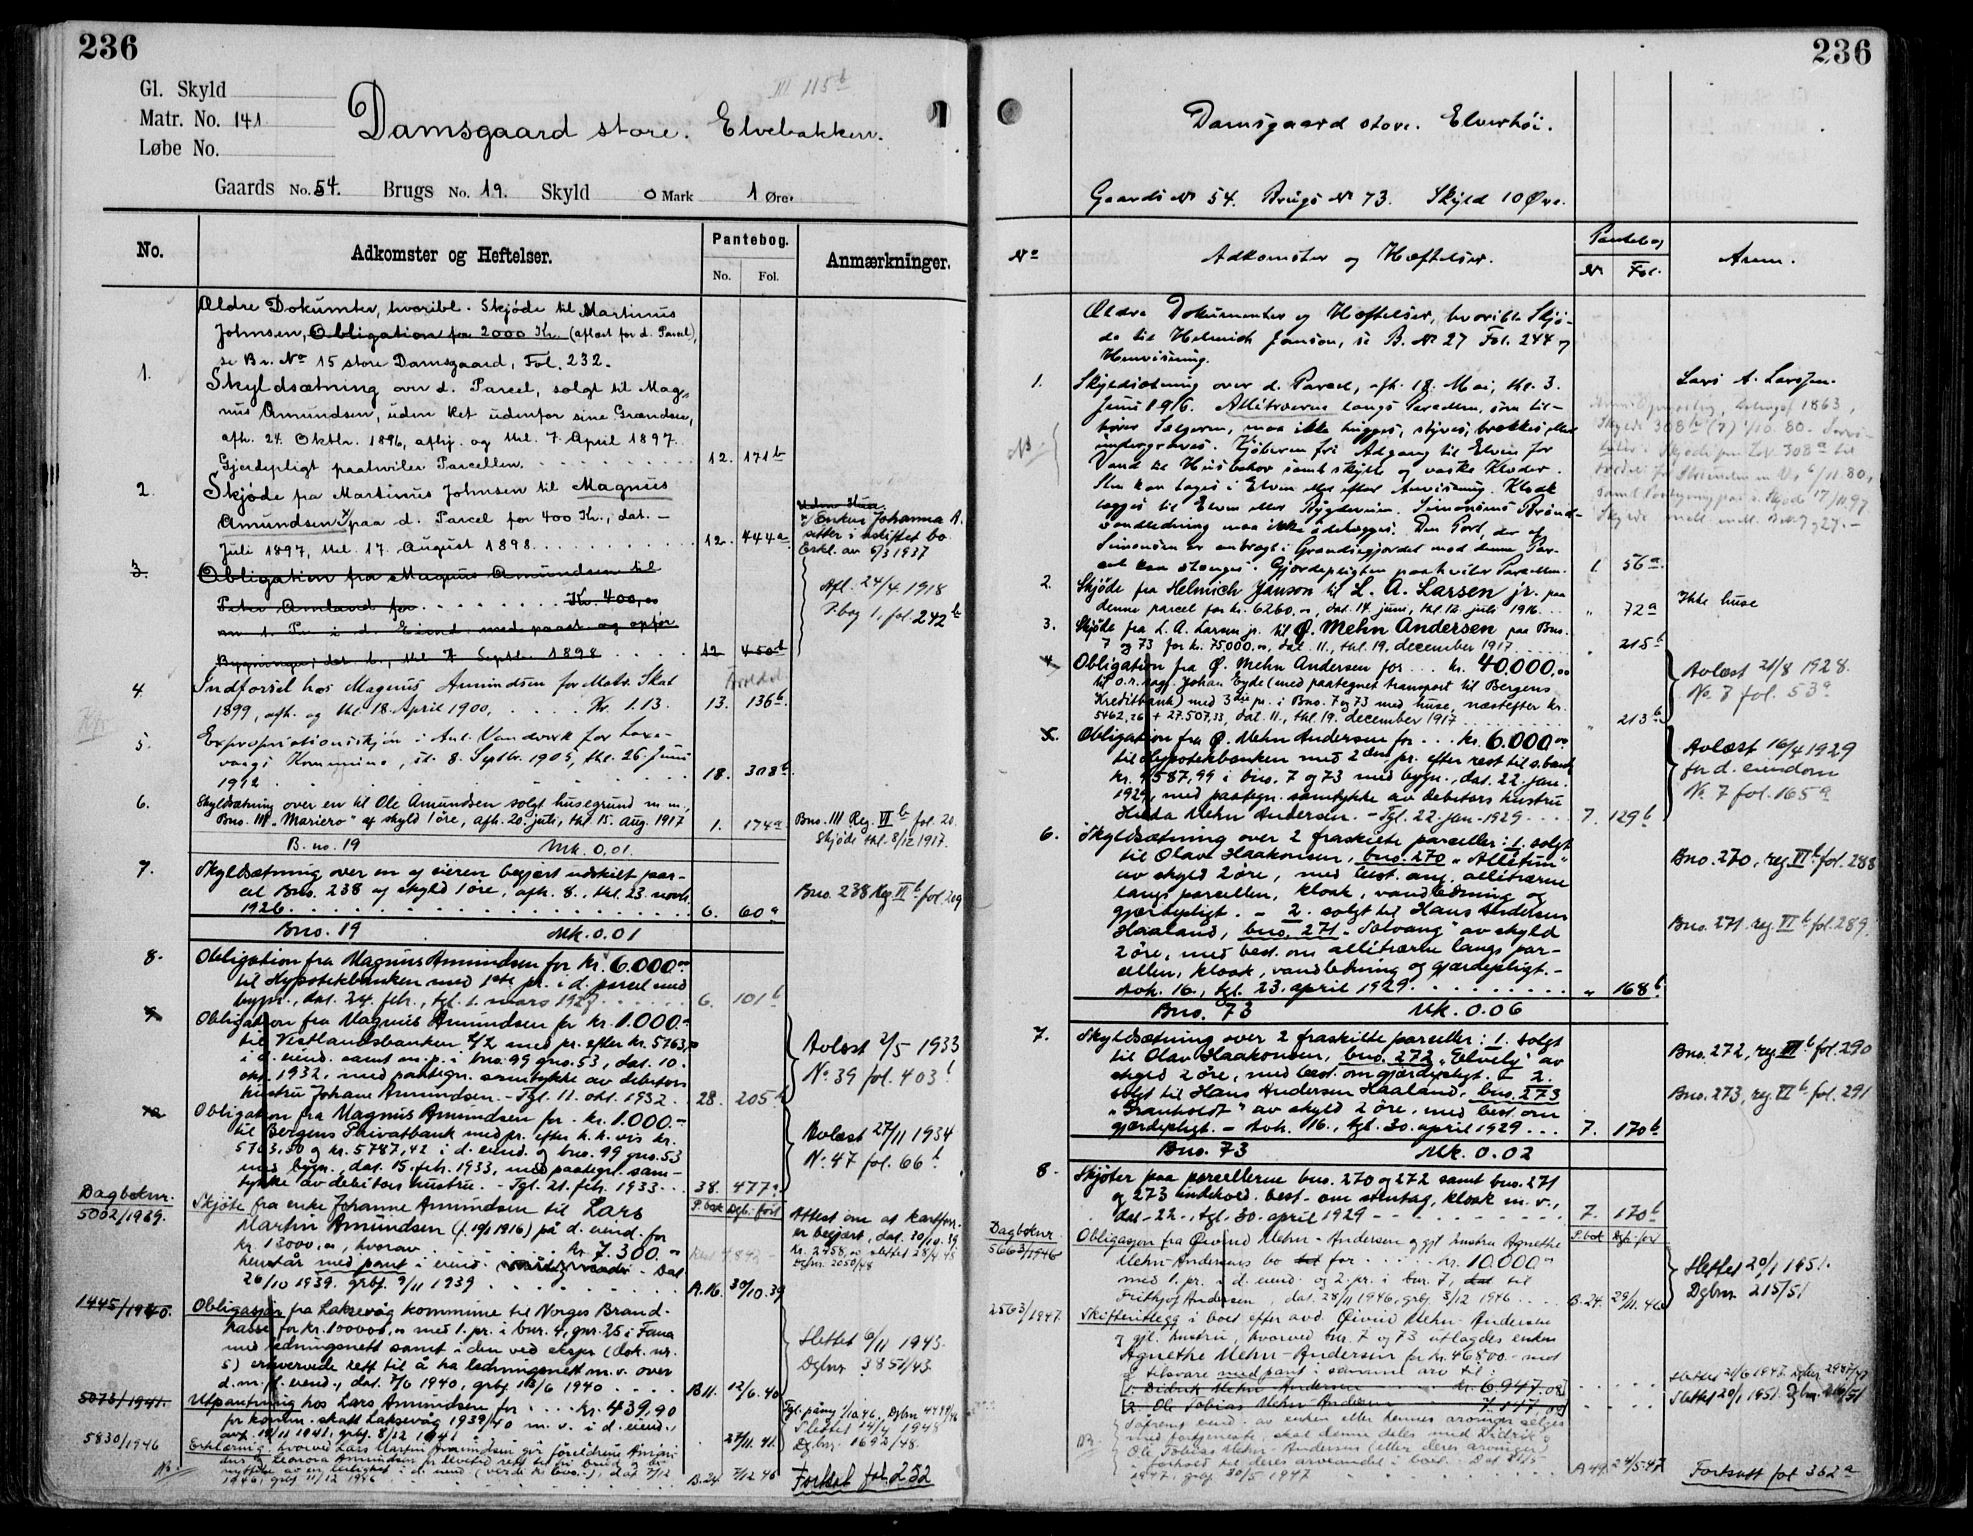 236
III 115b
Gl. Skyld
Matr. No. 141
Løbe No.
Damsgaard store. Elvebakken.
Gaards No. 54. Brugs No. 19. Skyld 0 Mark 1 Øre.
No.
Adkomster og Heftelser.
Pantebog.
No. Fol.
Anmærkninger.
Ældre Dokumter, hvoribl. Skjøde til Martinus
Johnsen, Obligation fra 2000 Kr. (aflæst for d. Parcel),
se Br. No 15 store Damsgaard, Fol. 232.
1. Skyldsætning over d. Parcel, solgt til Mag-
nus Amundsen, uden Ret udenfor sine Grændser,
afh. 24. Oktbr. 1896, afhj. og thl. 7. April 1897.
Gjerdepligt paahviler Parcellen. 12. 171b
2. Skjøde fra Martinus Johnsen til Magnus
Amundsen x) paa d. Parcel for 400 Kr., dat. -
Juli 1897, thl. 17. August 1898. 12. 444a
Uden Hus.
x) Enken Johanna A.
sitter i uskiftet bo
Erkl. av 6/3 1937
3. Obligation fra Magnus Amundsen til
Peter Amland for Kr. 400,00
m 1. Pr. i d. Eiend. med paast. og opfør
Bygninger, dat. d., thl. 7. Septbr. 1898 12 450b
Afl. 24/4 1918
P.bog 1, fol. 242b
4. Indførsel hos Magnus Amundsen for Matr. Skat
1899, afh. og thl. 18. April 1900. Kr. 1.13. 13. 136b.
5. Expropriationsskjøn i Anl. Vandverk for Laxe-
vaags Kommune, sl. 8. Septbr. 1905, thl. 26. Juni
1912 18. 308b.
6. Skyldsætning over en til Ole Amundsen solgt husegrund m m.,
Bno. 111 "Mariero" af skyld 1 øre, afh. 20. juli, thl. 15. aug. 1917 1. 174a
Bno. 111 Reg. VI b fol. 20.
Skjøde thl. 8/12 1917.
B. no. 19 Mk. 0,01.
7. Skyldsætning over en af eieren begjært utskilt par-
cel Bno. 238 af skyld 1 øre, afh. 8., thl. 23. novb.
1926. 6. 60a
Bno. 238 Reg VI b fol. 209
Bno. 19 Mk. 0.01
8. Obligation fra Magnus Amundsen for kr. 6.000.00
til Hypotekbanken med 1ste pr. i d. parcel med
bygn., dat. 24. febr., tgl. 1. mars 1927 6. 101b
9. Obligation fra Magnus Amundsen for kr. 1.000.-
til Vestlandsbanken A/L med pr. efter kr. 5763,30
i d. eiend. samt m. p. i bno. 99 gno. 53, dat. 10.
okt. 1932, med paategn. samtykke av debitors
hustru Johane Amundsen. - Tgl. 11. okt. 1932. 28. 205b
Avlæst 2/5 1933
No. 39 fol. 403b
10. Obligation fra Magnus Amundsen for kr. 1.000.-
til Bergens Privatbank med pr. efter h. h. vis kr.
5763,30 og kr. 5787,42 i d. eiend. og bno. 99 gno. 53
med bygn., dat. 15. feb. 1933, med paategn. sam-
tykke av debitors hustru. - Tgl. 21. feb. 1933. 38. 477a
Avlæst 27/11 1934
No. 47 fol. 66b
P.bok Dgb.-ført
Dagboknr.
5002/1939.
Skjøte fra enke Johanne Amundsen til Lars
Martin Amundsen (f. 19/1 1916) på d. eiend. for
kr. 13000,00, hvorav kr. 7.300.00
henstår med pant i eiend. Dat
26/10 1939. grbf. 9/11 1939 A.16. 30/10.39
Attest om at kartforr.
er begjært, dat. 30/10.39
1445/1940.
Obligasjon fra Laksevåg kommune til Norges Brand-
kasse for kr. 100000,00 med 1. pr. i bnr. 4, gnr. 25 i Fana
med ledningsnett samt i den ved ekspr. (dok. nr.
5) erhvervede rett til å ha ledningsnett m.v. over
d. m. fl. eiend., dat. 7/6 1940, grbf. 13/6 1940 B.11. 12/6.40
Slettet 6/11 1943.
Dgbnr. 3851/43.
5073/1941.
Utpantning hos Lars Amundsen for kr. 439,90
for komm. skatt Laksevåg 1939/40 m. v. i d. eiend.,
avh. 18/11 1941, grbf. 8/12 1941 27/11.41.
Tgl. påny 7/10 46, Dgbnr 4439/46
Slettet 14/4 1948
Dgbnr. 1692/48.
5830/1946
Erklæring, hvorved Lars Martin Amundsen gir foreldrene
og Leonora Amundsen for levetid rett til fri bruk og be-
nyttelse av en leilighet i d. eiend. (verdi kr. 600.-), dat 7/12
1946, grbf. 11/12 1946 B.24 7/12 46
Fortsat fol. 252
236
Damsgaard store. Elverhöi.
Gaards No 54. Brugs No 73. Skyld 10 Øre.
No
Adkomster og Hæftelser.
Pantebog
No Fol.
Anm.
Ældre Dokumenter og Hæftelser, hvoriblt Skjø-
de til Helmich Janson, se B. No 27 Fol. 244 og
Henvisning.
1. Skyldsætning over d. Parcel, afh. 18. Mai, thl. 3.
Juni 1916. Allétræerne langs Parcellen, som til-
hører Sælgeren, maa ikke hugges, styves, brækkes eller
undergraves. Kjøberen fri Adgang til Elven for
Vand til Husbehov samt skylle og vaske Klæder.
Sten kan tages i Elven efter Anvisning. Kloak
lægges til Elven eller Bygdeveien. Simonsens Brønd-
vandledning maa ikke ødelægges. Den Port, der af
Simonsen er anbragt i Grændsegjærdet mod denne Par-
cel kan stænges. Gjærdepligten paahviler Parcellen. 1. 56a.
Lars A. Larssen.
2. Skjøde fra Helmich Janson til L. A. Larsen jr. paa
denne parcel for kr. 6260.00, dat. 14. juni, thl. 12. juli 1916. " 72a
Ikke huse
3. Skjøde fra L. A. Larsen jr. til Ø. Mehn Andersen paa Bno.
7 og 73 for kr. 75000.00, dat. 11., thl. 19. december 1917 " 215b
4. Obligation fra Ø. Mehn Andersen for kr. 40.000,00
til o.r.sagf. Johan Eyde (med paategnet transport til Bergens
Kreditbank) med 3die pr. i Bno. 7 og 73 med huse, næstefter kr.
5462,26 + 27.507,33, dat. 11., thl. 19. december 1917 " 213b
Avlæst 21/8 1928.
No. 7 fol. 53a
5. Obligation fra Ø. Mehn Andersen for kr. 6.000.00
til Hypotekbanken med 2den pr. efter rest til s. bank
kr. 9587,99 i bno. 7 og 73 med bygn., dat. 22. jan.
1929, med paategn. samtykke av debitors hustru
Hilda Mehn Andersen. - Tgl. 22. jan. 1929 7. 129b
Avlæst 16/4 1929
for d. eiendom
No. 7 fol. 165a
6. Skyldsætning over 2 fraskilte parceller: 1. solgt
til Olav Haakonsen, bno. 270 "Allétun"
av skyld 2 øre, med best. ang. allétræerne
langs parcellen, kloak, vandledning og
gjærdepligt. - 2. solgt til Hans Andersen
Haaland, bno. 271 "Solvang" av skyld
2 øre, med best. om allétræerne langs par-
cellen, kloak, vandledning og gjærdepligt. -
Avh. 16., tgl. 23. april 1929. " 168b.
Bno. 270, reg. VI b fol. 288
Bno. 271 reg. VI b fol. 289.
Bno. 73 Mk. 0.06
7. Skyldsætning over 2 fraskilte parceller: 1. solgt
til Olav Haakonsen, bno. 272 "Elvely" av
skyld 2 øre, med best. om gjærdepligt. - 2.
solgt til Hans Andersen Haaland, bno. 273
"Granholdt" av skyld 2 øre, med best. om
gjærdepligt. - Avh. 16., tgl. 30. april 1929 7. 170b
Bno. 272, reg. VI b fol. 290
Bno. 273, reg. VI b fol. 291
Bno. 73 Mk. 0.02
8. Skjøter paa parcellerne bno. 270 og 272 samt bno. 271
og 273 indehold. best. om stentag, kloak m. v.,
dat. 22., tgl. 30. april 1929 7. 170b
P.bok Dgb. ført
Dagboknr
5663/1946
Obligasjon fra Øivind Mehn-Andersen og gjl. hustru Agnethe
Mehn-Andersens bo for kr. 10.000.00
med 1. pr. i d. eiend. og 2. pr. i bnr. 7, til
Frithjof Andersen, dat. 28/11 1946, grbf. 3/12 1946 B.24. 29/11.46
Slettet 20/1 1951.
Dgbnr 215/51
2563/1947.
Skifteutlegg i boet efter avd. Øivind Mehn-Andersen
og gjl. hustru, hvorved bnr. 7 og 73 utlagdes enken
Agnethe Mehn-Andersen for kr. 46800.- mot
å tilsvare med pant i samme arv til:
1. Didrik Mehn Andersen kr. 6.947.02
2. Ole Tobias Mehn Andersen " 7.147.02
Såfremt eiend. av enken eller hennes arvinger selges
med fortjeneste, skal denne deles med Didrik og
Ole Tobias Mehn-Andersen (eller deres arvinger)
i forhold til deres arveandel i boet. - Dat 21/5
1947, grbf. 30/5 1947 A.49. 24/5.47
Slettet 21/6 1947. Dgbnr 2947/47
Slettet 20/1 1951. Dgbnr 216/51
Fortsatt fol 362a